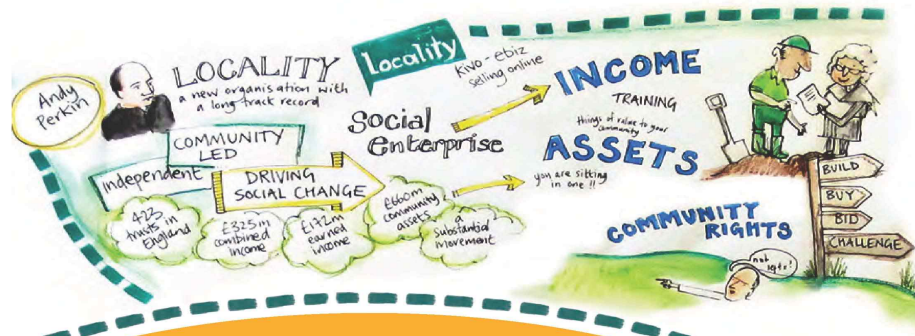 Andy
Perkin
LOCALITY
a new organisation with
a long track record
Locality
COMMUNITY
LED
Independent
DRIVING
SOCIAL CHANGE
423
trusts in
England
£325m
combined
income
£172m
earned
income
£660m
community
assets
a
substantial
movement
Social
Enterprise
Kivo-ebiz
selling online
INCOME
TRAINING
things of value to your
community
ASSETS
you are sitting
in one !!
COMMUNITY
RIGHTS
BUILD
BUY
BID
CHALLENGE